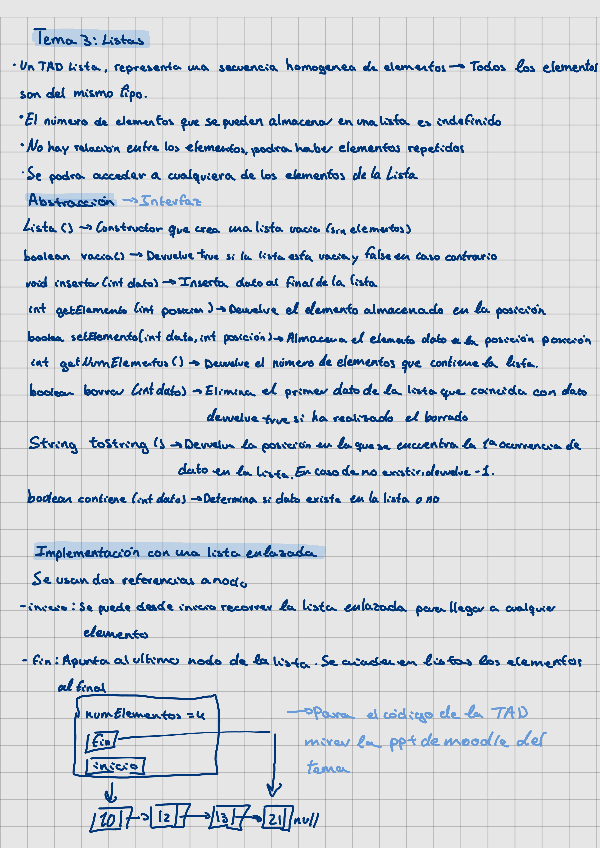 Tema 3: Listas
· Un TAD Lista, representa una secuencia homogenea de elementos → Todos los elementos
son del mismo tipo.
· El número de elementos que se pueden almacenar en una lista es indefinido
· No hay relación entre los elementos, podrá haber elementos repetidos
· Se podrá acceder a cualquiera de los elementos de la Lista
Abstracción → Interfaz
Lista () → Constructor que crea una lista vacia (sin elementos)
boolean vacia() → Devuelve true si la lista esta vacia y false en caso contrario
void insertar (int dato) → Inserta dato al final de la lista
int getElemento (int posicion) → Devuelve el elemento almacenado en la posición
boolea setElemento(int dato, int posición) → Almacena el elemento dato a la posición posición
int getNumElementos () → Devuelve el número de elementos que contiene la lista.
boolean borrar (int dato) → Elimina el primer dato de la lista que coincida con dato
devuelve true si ha realizado el borrado
String toString () → Devuelve la posición en la que se encuentra la 1ª ocurrencia de
dato en la lista. En caso de no existir, devuelve -1.
boolean contiene (int dato) → Determina si dato existe en la lista o no
Implementación con una lista enlazada
Se usan dos referencias a nodo
- inicio: Se puede desde inicio recorrer la lista enlazada para llegar a cualquier
elemento
- fin: Apunta al ultimo nodo de la lista. Se añaden en listas los elementos
al final
numElementos = 4
fin
inicio
→ Para el código de la TAD
mirar la ppt de moodle del
tema
10 → 12 → 13 → 21 null